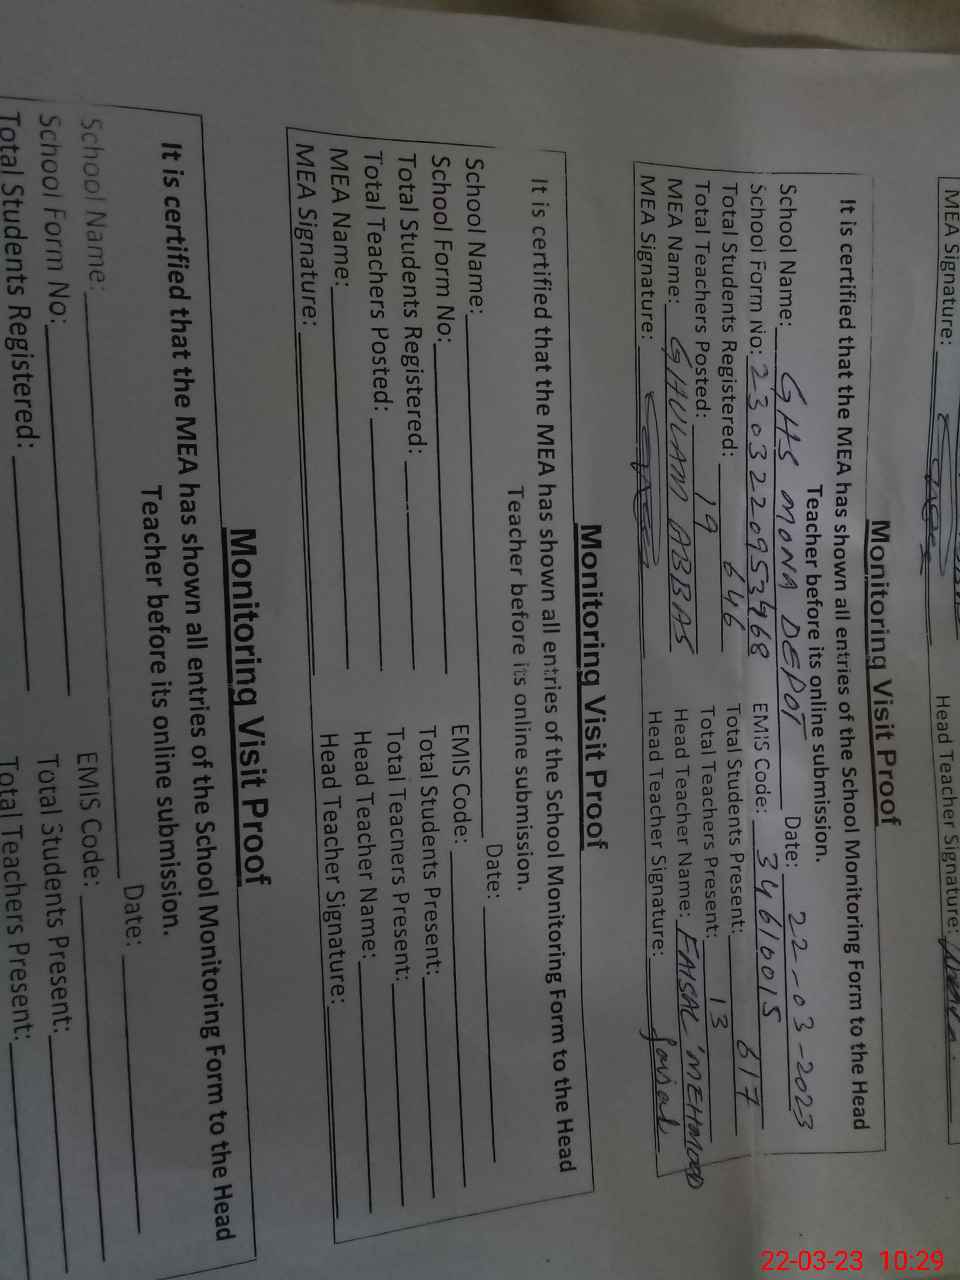 MEA Signature: Head Teacher Signature:
Monitoring Visit Proof
It is certified that the MEA has shown all entries of the School Monitoring Form to the Head
Teacher before its online submission.
School Name: GHS MONA DEPOT Date: 22-03-2023
School Form No: 2303220953468 EMIS Code: 34610015
Total Students Registered: 646 Total Students Present: 617
Total Teachers Posted: 19 Total Teachers Present: 13
MEA Name: GHULAM ABBAS Head Teacher Name: FAISAL MEHMOOD
MEA Signature: Head Teacher Signature: faisal
Monitoring Visit Proof
It is certified that the MEA has shown all entries of the School Monitoring Form to the Head
Teacher before its online submission.
School Name: Date:
School Form No: EMIS Code:
Total Students Registered: Total Students Present:
Total Teachers Posted: Total Teachers Present:
MEA Name: Head Teacher Name:
MEA Signature: Head Teacher Signature:
Monitoring Visit Proof
It is certified that the MEA has shown all entries of the School Monitoring Form to the Head
Teacher before its online submission.
School Name: Date:
School Form No: EMIS Code:
Total Students Registered: Total Students Present:
Total Teachers Present:
22-03-23 10:29